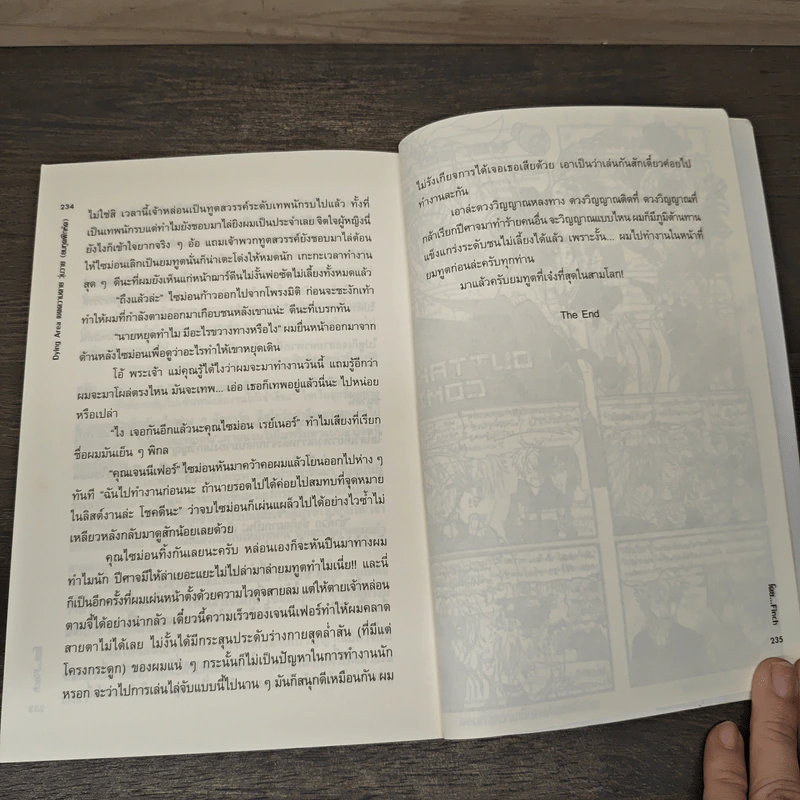 234
Dying Area เขตความตาย วุ่นวาย
ไม่ใช่สิ เวลานี้เจ้าหล่อนเป็นทูตสวรรค์ระดับเทพนักรบไปแล้ว ทั้งที่
เป็นเทพนักรบแต่ทำไมยังชอบมาไล่ยิงผมเป็นประจำเลย จิตใจผู้หญิงนี่
ยังไงก็เข้าใจยากจริง ๆ อ้อ แถมเจ้าพวกทูตสวรรค์ยังชอบมาไล่ต้อน
ให้ไซม่อนเลิกเป็นยมทูตนั่นก็น่าเตะโด่งให้หมดนัก เกะกะเวลาทำงาน
สุด ๆ ดีนะที่ผมยังเห็นแก่หน้าฌาร์ดีนไม่งั้นพ่อซัดไม่เลี้ยงทั้งหมดแล้ว
“ถึงแล้วล่ะ” ไซม่อนก้าวออกไปจากโพรงมิติ ก่อนจะชะงักเท้า
ทำให้ผมที่กำลังตามออกมาเกือบชนหลังเขาแน่ะ ดีนะที่เบรกทัน
“นายหยุดทำไม มีอะไรขวางทางหรือไง” ผมยื่นหน้าออกมาจาก
ด้านหลังไซม่อนเพื่อดูว่าอะไรทำให้เขาหยุดเดิน
โอ้ พระเจ้า แม่คุณรู้ได้ไงว่าผมจะมาทำงานวันนี้ แถมรู้อีกว่า
ผมจะมาโผล่ตรงไหน มันจะเทพ... เอ่อ เธอก็เทพอยู่แล้วนี่นะ ไปหน่อย
หรือเปล่า
“ไง เจอกันอีกแล้วนะคุณไซม่อน เรย์เนอร์” ทำไมเสียงที่เรียก
ชื่อผมมันเย็น ๆ พิกล
“คุณเจนนีเฟอร์” ไซม่อนหันมาคว้าคอผมแล้วโยนออกไปห่าง ๆ
ทันที “ฉันไปทำงานก่อนนะ ถ้านายรอดไปได้ค่อยไปสมทบที่จุดหมาย
ในลิสต์งานล่ะ โชคดีนะ” ว่าจบไซม่อนก็เผ่นแผล็วไปได้อย่างไวซ้ำไม่
เหลียวหลังกลับมาดูสักน้อยเลยด้วย
คุณไซม่อนทิ้งกันเลยนะครับ หล่อนเองก็จะหันปืนมาทางผม
ทำไมนัก ปีศาจมีให้ล่าเยอะแยะไม่ไปล่ามาล่ายมทูตทำไมเนี่ย!! และนี่
ก็เป็นอีกครั้งที่ผมเผ่นหน้าตั้งด้วยความไวดุจสายลม แต่ให้ตายเจ้าหล่อน
ตามจี้ได้อย่างน่ากลัว เดี๋ยวนี้ความเร็วของเจนนีเฟอร์ทำให้ผมคลาด
สายตาไม่ได้เลย ไม่งั้นได้มีกระสุนประดับร่างกายสุดล่ำสัน (ที่มีแต่
โครงกระดูก) ของผมแน่ ๆ กระนั้นก็ไม่เป็นปัญหาในการทำงานนัก
หรอก จะว่าไปการเล่นไล่จับแบบนี้ไปนาน ๆ มันก็สนุกดีเหมือนกัน ผม
ไม่รังเกียจการได้เจอเธอเสียด้วย เอาเป็นว่าเล่นกันสักเดี๋ยวค่อยไป
ทำงานละกัน
เอาล่ะดวงวิญญาณหลงทาง ดวงวิญญาณติดที่ ดวงวิญญาณที่
กล้าเรียกปีศาจมาทำร้ายคนอื่น จะวิญญาณแบบไหน ผมก็มีภูมิต้านทาน
แข็งแกร่งระดับชนไม่เลี้ยงได้แล้ว เพราะงั้น... ผมไปทำงานในหน้าที่
ยมทูตก่อนล่ะครับทุกท่าน
มาแล้วครับยมทูตที่เจ๋งที่สุดในสามโลก!
The End
โดย...Finch
235